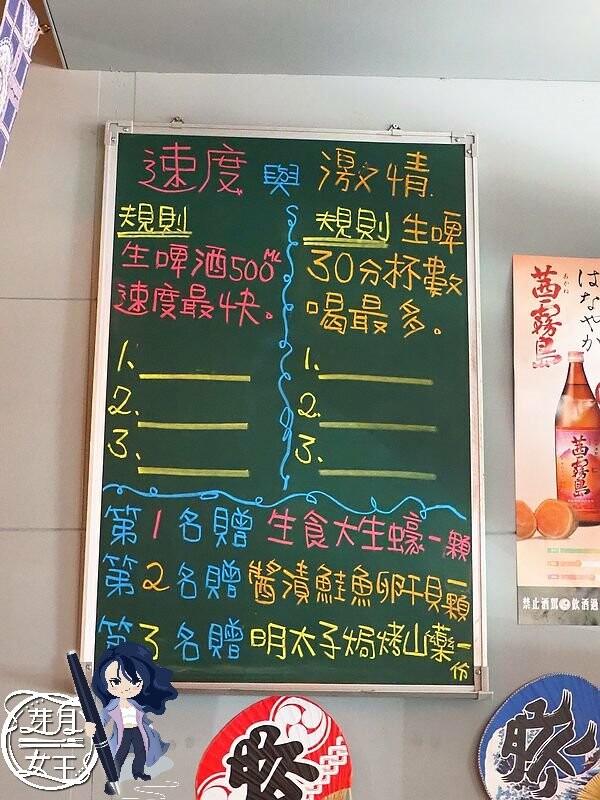 速度 與 激情
規則
生啤酒500ML
速度最快。
1.
2.
3.
規則 生啤
30分杯數
喝最多。
1.
2.
3.
第1名贈 生食大生蠔一顆
第2名贈 醬漬鮭魚卵干貝一顆
第3名贈 明太子焗烤山藥一份
はなやか
あかね
茜霧島
茜霧島
禁止酒駕 飲酒過
祭
芽月
女王